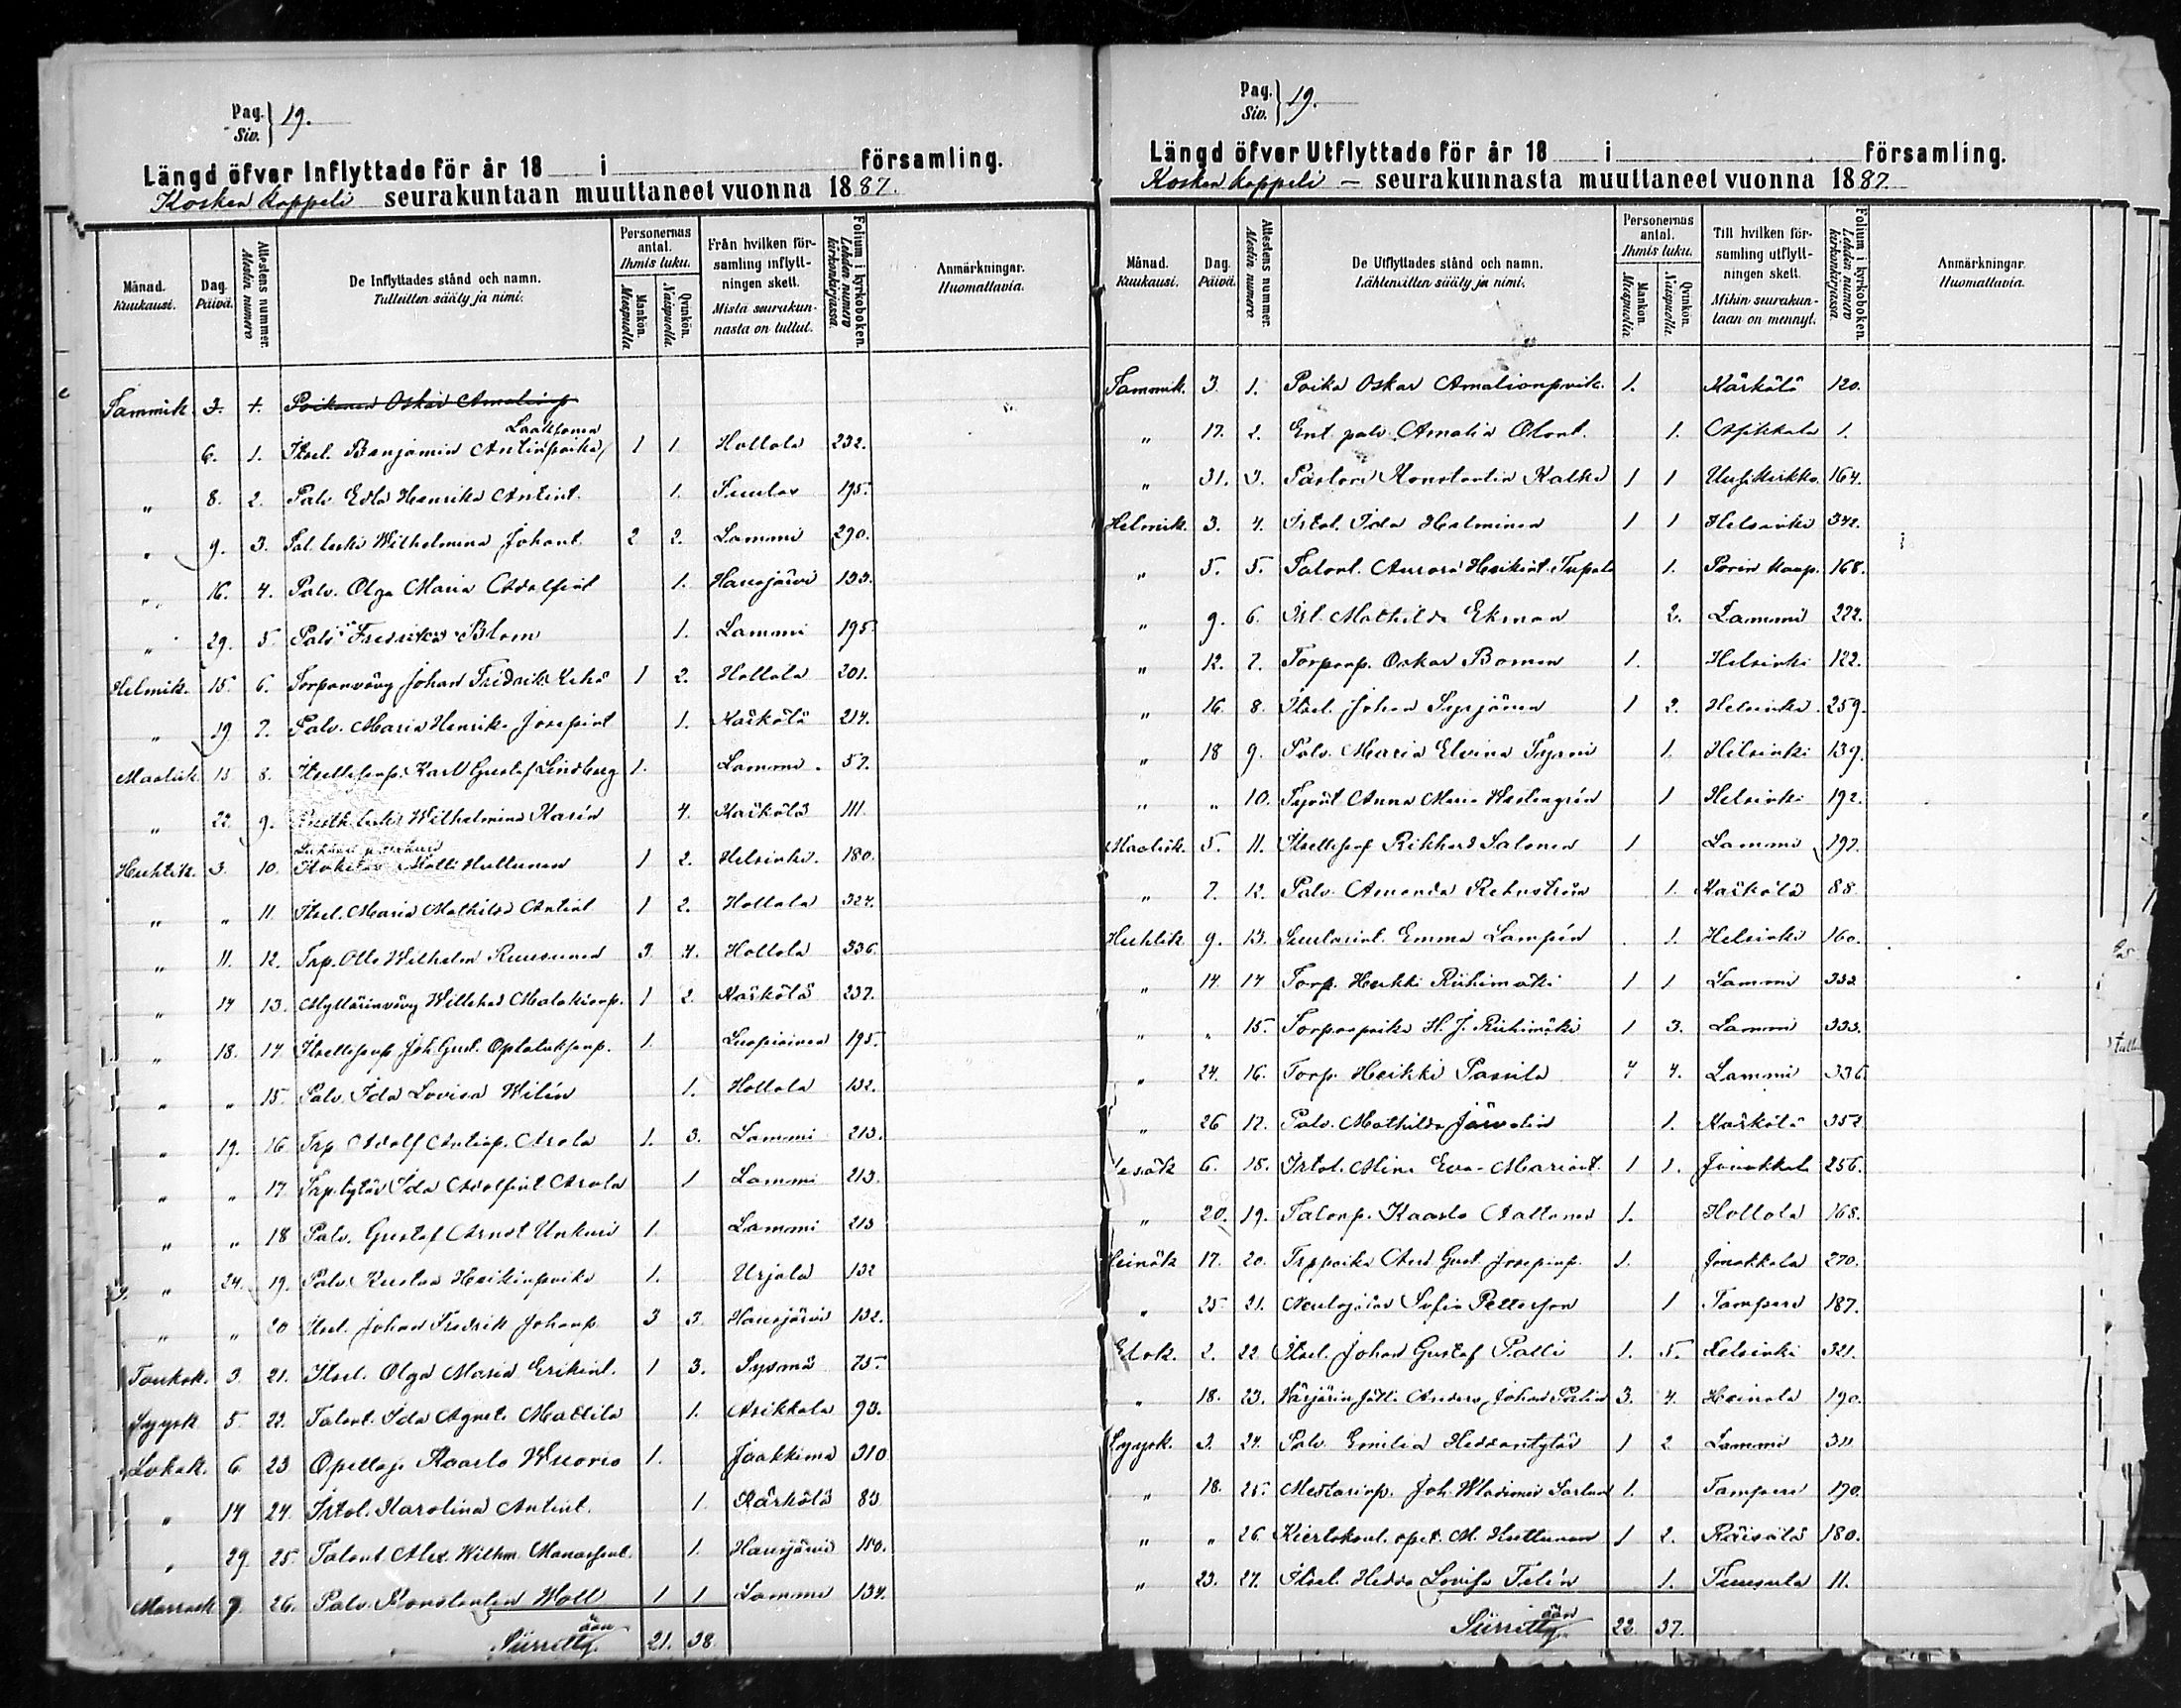 Pag. Siv. } 19.
Längd öfver Inflyttade för år 18 i församling.
Kosken kappeli seurakuntaan muuttaneet vuonna 1887.
Månad. Kuukausi.
Dag. Päivä.
Attestens nummer. Atestin numero
De Inflyttades stånd och namn. Tulleitten sääty ja nimi.
Personernas antal. Ihmis luku.
Mankön. Miespuolia
Qvinkön. Naispuolia.
Från hvilken församling inflyttningen skett. Mistä seurakunnasta on tullut.
Folium i kyrkoboken. Lehden numero kirkonkirjassa.
Anmärkningar. Huomattavia.
Tammik. 3. 1. Poikanen Oskar Amalianp
Laaksonen
6. 1. Itsel. Benjamin Antinpoika 1 1 Hollola 232.
" 8. 2. Palv. Edla Henrika Antint. 1. Tuulos 195.
" 9. 3. Tal. leski Wilhelmina Johant. 2 2. Lammi 290.
" 16. 4. Palv. Olga Maria Adolfint 1. Hausjärvi 133.
" 29. 5. Palv. Fredrika Blom 1. Lammi 195.
Helmik. 15. 6. Torpanvävy Johan Fredrik Kehä 1 2. Hollola 201.
" 19 7. Palv. Maria Henrika Josepint 1. Kärkölä 214.
Maalisk. 15 8. Itsellisenp. Karl Gustaf Lindberg 1. Lammi 57.
" 22. 9. leski Wilhelmina Karén 4. Kärkölä 111.
Huhtik. 3. 10. Matti Huttunen 1 2. Helsinki. 180.
" " 11. Itsel. Maria Mathilda Antint 1 2. Hollola 324.
" 11. 12. Trp. Otto Wilhelm Ruusunen 3 4. Hollola 336.
" 14 13. Myllärinvävy Willehad Malakianp. 1 2. Kärkölä 237.
" 18. 14. Itsellisenp Joh. Gust. 1. Luopioinen 195.
" " 15. Palv. Ida Lovisa Wilén 1. Hollola 132.
" 19. 16 Trp Adolf Antinp. Arola 1. 3. Lammi 213.
" " 17. Trp. tytär Ida Adolfint Arola 1 Lammi 213.
" " 18 Palv. Gustaf Arnst Unkuri 1. Lammi 213
" 24. 19. Palv. Kustaa Heikinpoika 1. Urjala 132
" " 20 Itsel. Johan Fredrik Johanp 3 3. Hausjärvi 132.
Toukok. 3. 21. Itsel. Olga Maria Erikint. 1 3. Sysmä 75.
Syysk. 5. 22. Talont. Ida Agneta Mattila 1. Asikkala 93.
Lokak. 6. 23 Opettaja Kaarlo Wuorio 1. Jaakkima 310
" 14 24. Irtol. Karolina Antint. 1. Kärkölä 83
" 29. 25. Talont Alex. Wilhm. 1. Hausjärvi 150.
Marrask 7. 26. Palv. Konstantin Woll 1 1 Lammi 134.
Siirrettävään 21. 38.
Pag. Siv. } 19.
Längd öfver Utflyttade för år 18 i församling.
Kosken kappeli – seurakunnasta muuttaneet vuonna 1887
Månad. Kuukausi.
Dag. Päivä.
Attestens nummer. Atestin numero.
De Utflyttades stånd och namn. Lähteneitten sääty ja nimi.
Personernas antal. Ihmis luku.
Mankön. Miespuolia
Qvinkön. Naispuolia.
Till hvilken församling utflyttningen skett. Mihin seurakuntaan on mennyt.
Folium i kyrkoboken. Lehden numero kirkonkirjassa.
Anmärkningar. Huomattavia.
Tammik. 3. 1. Poika Oskar Amalianpoik. 1. Kärkölä 120.
" 17. 2. Ent. palv. Amalia Olont. 1. Asikkala 1.
" 31. 3. Pastori Konstantin Kalke 1 1 Uusikirkko 164.
Helmik. 3. 4. Irtol. Ida Halminen 1 1 Helsinki 342.
" 5. 5. Talont. Aurora Heikint. Tupala 1. Porin kaup. 168.
" 9. 6. Isl. Mathilda Ekman 2. Lammi 222.
" 12. 7. Torparp. Oskar Boman 1. Helsinki 122.
" 16. 8. Itsel. Johan Syrjänen 1 2. Helsinki. 259.
" 18 9. Palv. Maria Elvina Syrni 1. Helsinki 139.
" " 10. Anna Maria 1 Helsinki 192.
Maalisk. 5. 11. Itsellisenp Rikhard Salonen 1 Lammi 197.
" 7. 12. Palv. Amanda Rehnström 1. Kärkölä 88.
Huhtik 9. 13. Emma Lampén 1. Helsinki 160.
" 14. 14 Torp. Heikki Riihimäki 1 1 Lammi 333
" " 15. Torparpoika H. J. Riihimäki 1 3. Lammi 333.
" 24. 16. Torp. Heikki Passila 4 4. Lammi 336.
" 26 17. Palv. Mathilda Järvelin 1. Kärkölä 352
Kesäk 6. 18. Irtol. Miina Eva-Mariant. 1 1. Janakkala 256.
" 20. 19. Talonp. Kaarlo Aaltonen 1. Hollola 168.
Heinäk 17. 20. Trppoika And. Gust. Josepinp. 1. Janakkala 270.
" 25 21. Neulojatar Sofia Petterson 1 Tampere 187.
Elok. 2. 22 Itsel. Johan Gustaf Palli 1. 5. Helsinki 321.
" 18. 23. Anders Johan 3. 4. Heinola 190.
Syysk. 3. 24. Palv. Emilia Heddantytär 1 2 Lammi 311
" 18. 25. Mestarinp. Joh. Wladimir 1. Tampere 190
" " 26. Kiertokoul. opet. M. Huttunen 1 2. Räisälä 180.
" 23. 27. Itsel. Hedda Lovisa Telén 1. Tuusula 11.
Siirrettävään 22. 37.